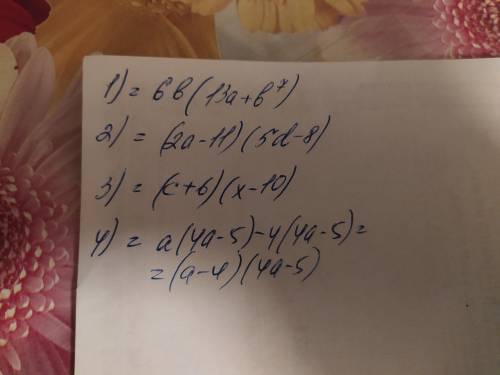 1) = 6b(13a+b⁷)
2) = (2a-11)(5d-8)
3) = (c+6)(x-10)
4) = a(4a-5)-4(4a-5)=
=(a-4)(4a-5)